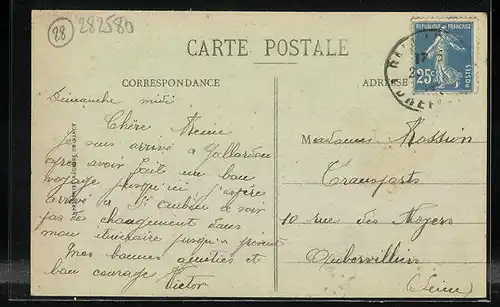 28
282580
CARTE POSTALE
CORRESPONDANCE
ADRESSE
25c
POSTES
Dimanche midi
Chère Reine
Je suis arrivé à Gallardon
après avoir fait un bon
voyage jusqu'ici j'espère
arrivé à St aubin ce soir
pas de changement dans
mon itinéraire jusqu'à présent
Mes bonnes amitiés et
bon courage Victor
Madame Massin
Transports
10 rue des Noyers
Aubervilliers
(Seine)